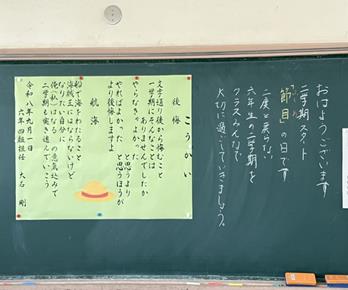 おはようございます
二学期スタート
節目の日です
二度と来ない
六年生の二学期を
クラスみんなで
大切に過ごしていきましょう。
こうかい
後悔
文字通り後から悔むこと
一学期にそんなことは
ありませんでしたか
やらなきゃよかった
と思うより
やればよかった
と思うほうが
より後悔しますよ
航海
船で海をわたること
海賊王にはならないけど
なりたい自分に
俺(私)はなる の意気込みで
二学期も突き進んでいこう
令和八年九月一日
六年四組担任 大石 剛